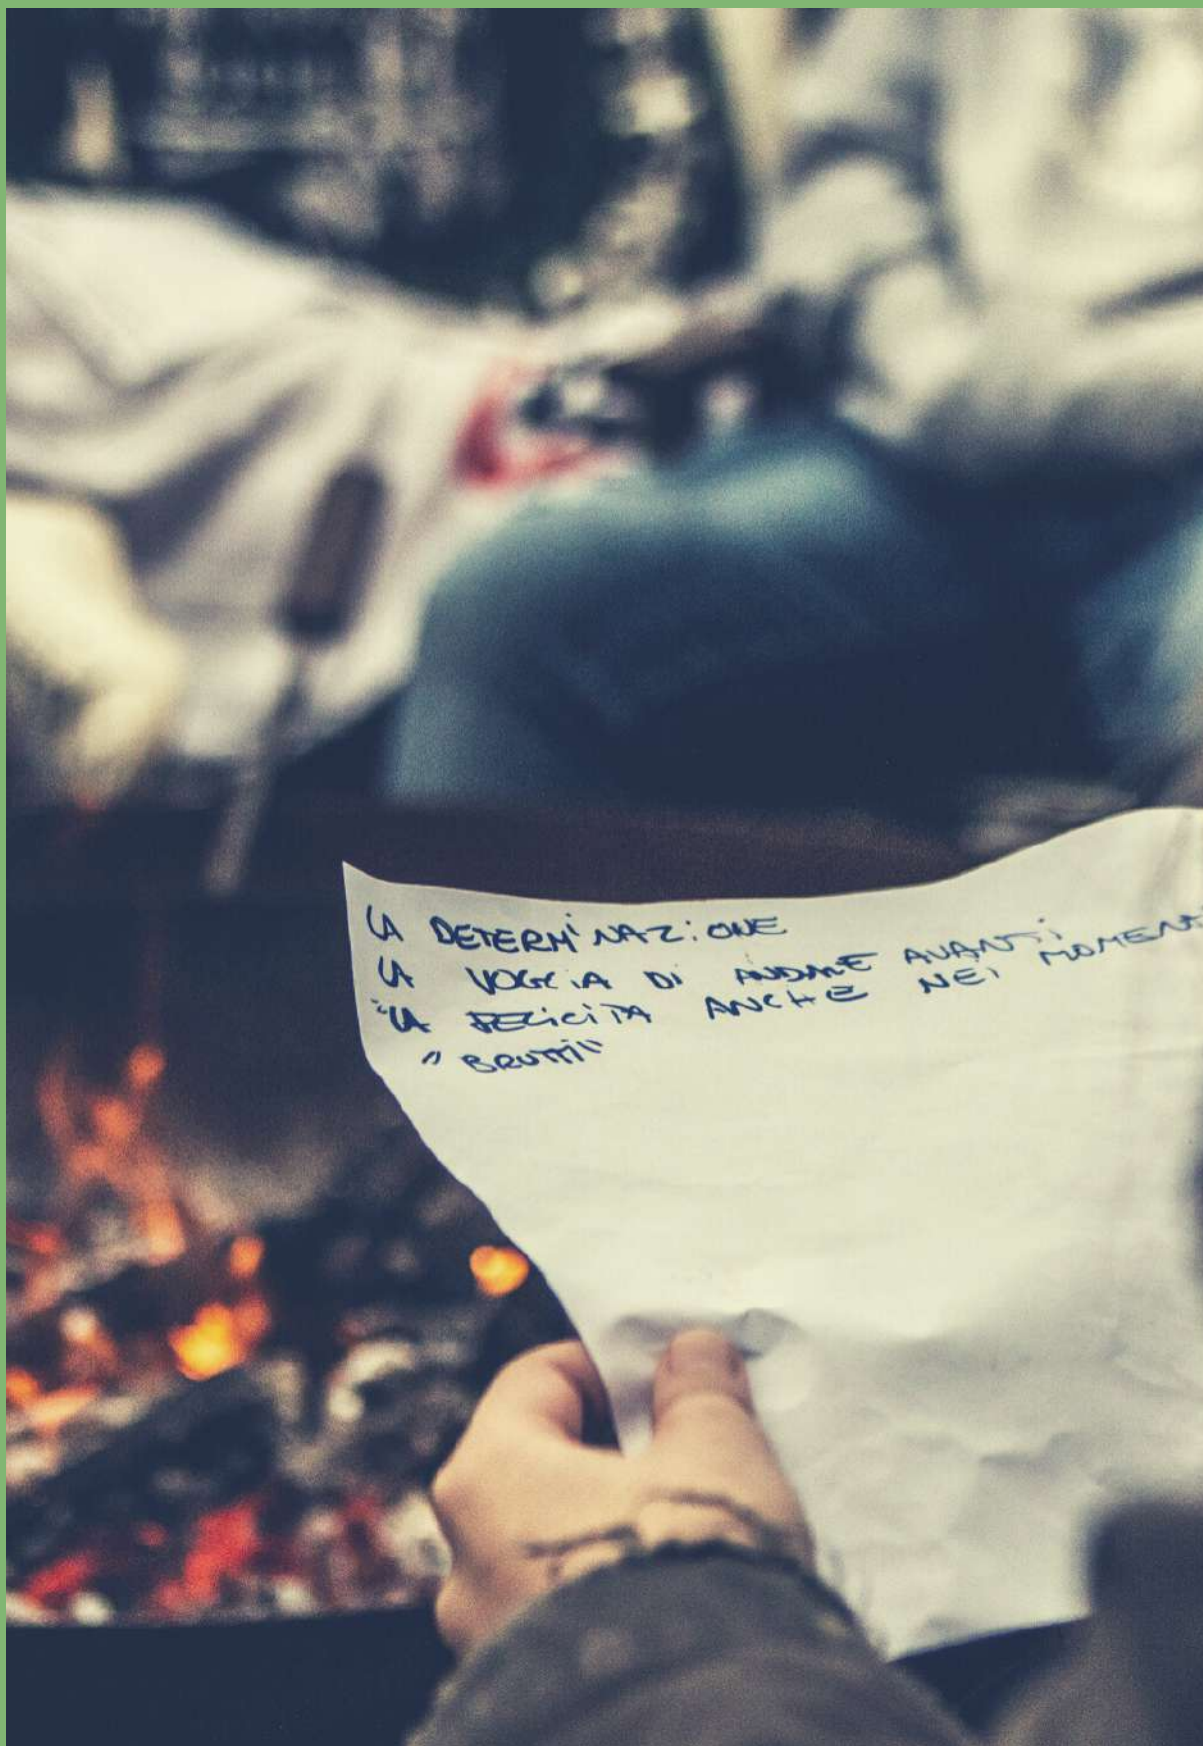 LA DETERMINAZIONE
LA VOGLIA DI ANDARE AVANTI
LA FELICITA ANCHE NEI MOMENT
"BRUTTI"